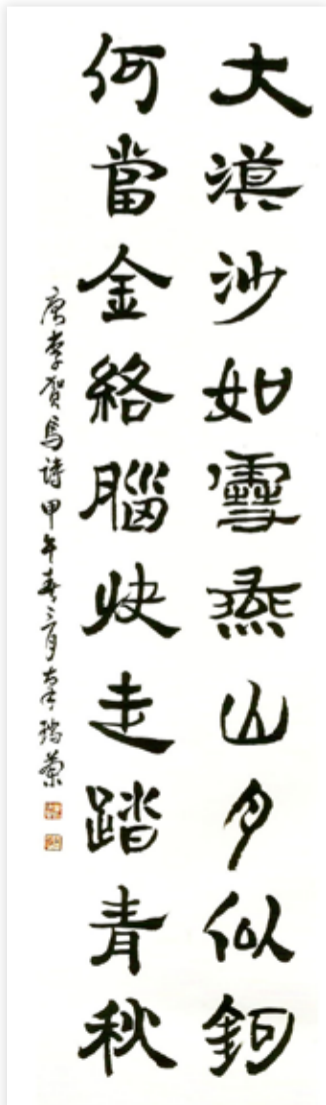 大漠沙如雪燕山月似鉤
何當金絡腦快走踏青秋
唐李賀馬詩甲午春三月李瑞蘭